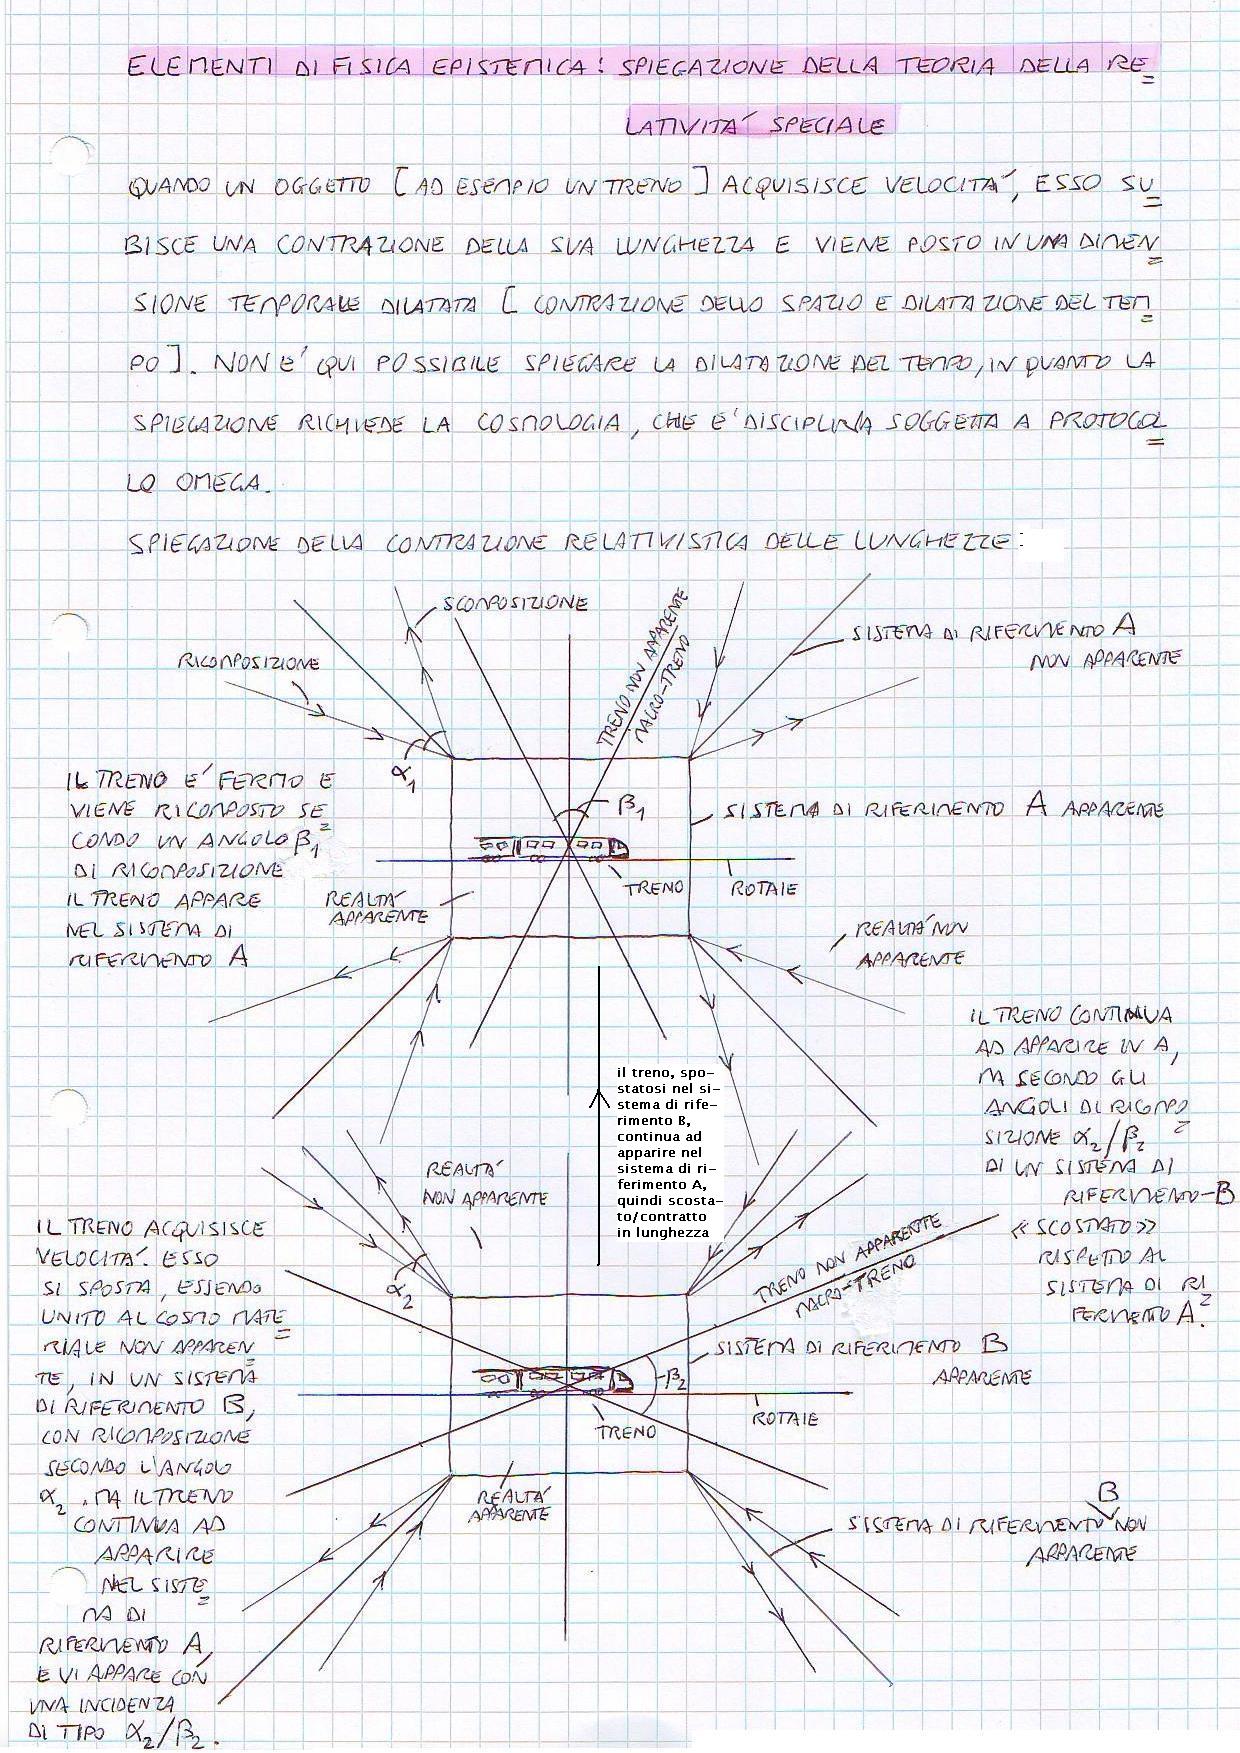 ELEMENTI DI FISICA EPISTEMICA: SPIEGAZIONE DELLA TEORIA DELLA RE
LATIVITA' SPECIALE
QUANDO UN OGGETTO [AD ESEMPIO UN TRENO] ACQUISISCE VELOCITA', ESSO SU
BISCE UNA CONTRAZIONE DELLA SUA LUNGHEZZA E VIENE POSTO IN UNA DIMEN
SIONE TEMPORALE DILATATA [CONTRAZIONE DELLO SPAZIO E DILATAZIONE DEL TEM
PO]. NON E' QUI POSSIBILE SPIEGARE LA DILATAZIONE DEL TEMPO, IN QUANTO LA
SPIEGAZIONE RICHIEDE LA COSMOLOGIA, CHE E' DISCIPLINA SOGGETTA A PROTOCOL
LO OMEGA.
SPIEGAZIONE DELLA CONTRAZIONE RELATIVISTICA DELLE LUNGHEZZE:
SCOMPOSIZIONE
RICOMPOSIZIONE
TRENO NON APPARENTE
MACRO-TRENO
SISTEMA DI RIFERIMENTO A
NON APPARENTE
α1
β1
IL TRENO E' FERMO E
VIENE RICOMPOSTO SE
CONDO UN ANGOLO β1
DI RICOMPOSIZIONE
IL TRENO APPARE
NEL SISTEMA DI
RIFERIMENTO A
SISTEMA DI RIFERIMENTO A APPARENTE
TRENO
ROTAIE
REALTA'
APPARENTE
REALTA' NON
APPARENTE
IL TRENO CONTINUA
AD APPARIRE IN A,
MA SECONDO GLI
ANGOLI DI RICOMPO
SIZIONE α2/β2
DI UN SISTEMA DI
RIFERIMENTO-B
«SCOSTATO»
RISPETTO AL
SISTEMA DI RI
FERIMENTO A.
il treno, spo-
statosi nel si-
stema di rife-
rimento B,
continua ad
apparire nel
sistema di ri-
ferimento A,
quindi scosta-
to/contratto
in lunghezza
REALTA'
NON APPARENTE
IL TRENO ACQUISISCE
VELOCITA'. ESSO
SI SPOSTA, ESSENDO
UNITO AL COSMO MATE
RIALE NON APPAREN
TE, IN UN SISTEMA
DI RIFERIMENTO B,
CON RICOMPOSIZIONE
SECONDO L'ANGOLO
α2. MA IL TRENO
CONTINUA AD
APPARIRE
NEL SISTE
MA DI
RIFERIMENTO A,
E VI APPARE CON
UNA INCIDENZA
DI TIPO α2/β2.
α2
TRENO NON APPARENTE
MACRO-TRENO
SISTEMA DI RIFERIMENTO B
APPARENTE
β2
TRENO
ROTAIE
REALTA'
APPARENTE
B
SISTEMA DI RIFERIMENTO NON
APPARENTE